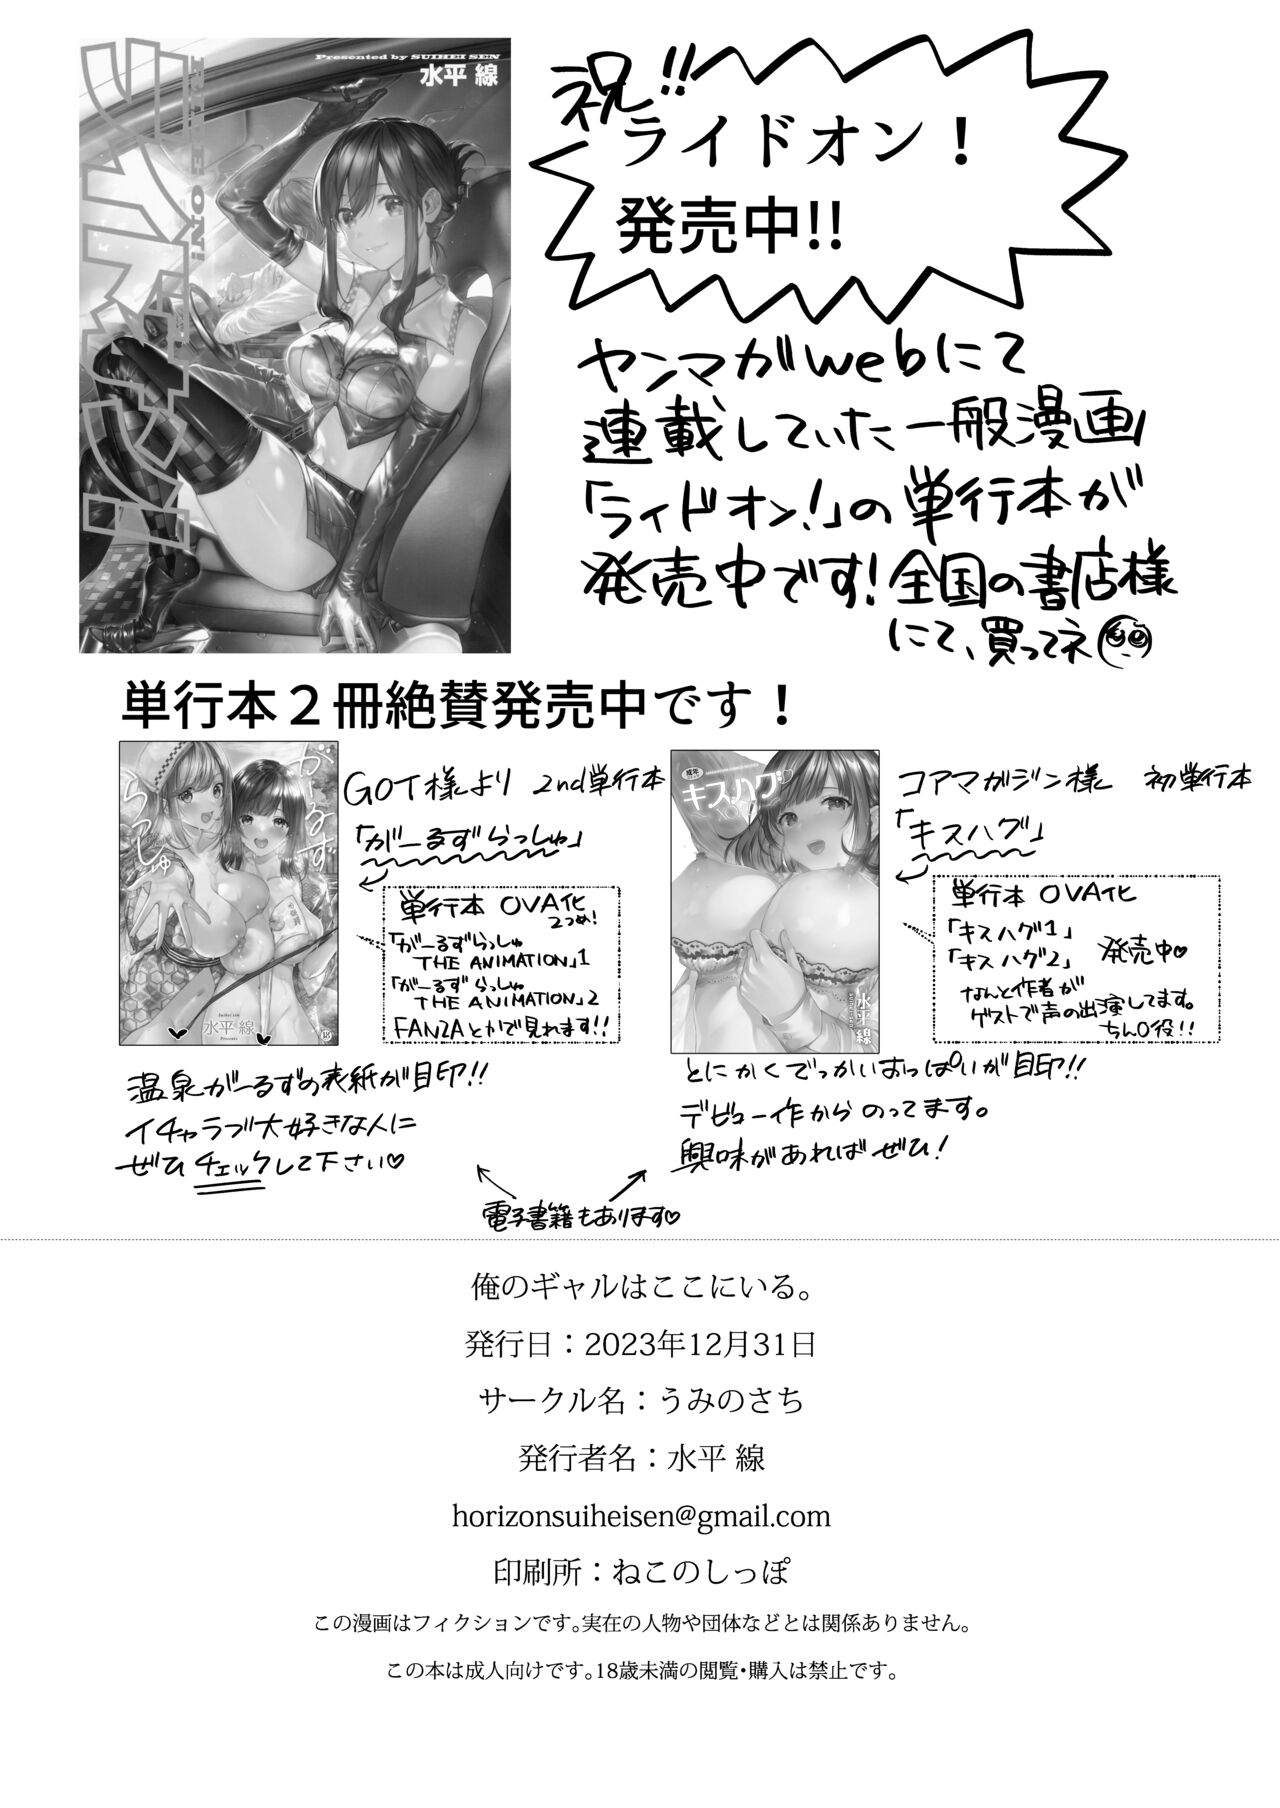 Presented by SUIHEI SEN
水平 線
ライドオン!
RIDE ON!
祝!!
ライドオン！
発売中!!
ヤンマガwebにて
連載していた一般漫画
「ライドオン!」の単行本が
発売中です!全国の書店様
にて、買ってネ
単行本２冊絶賛発売中です！
がーるず
らっしゅ
水平 線
Presents
GOT様より 2nd単行本
「がーるずらっしゅ」
単行本 OVA化
2つめ!
「がーるずらっしゅ
THE ANIMATION」1
「がーるずらっしゅ
THE ANIMATION」2
FANZAとかで見れます!!
温泉がーるずの表紙が目印!!
イチャラブ大好きな人に
ぜひチェックして下さい♡
成年
キスハグ
水平線
コアマガジン様 初単行本
「キスハグ」
単行本 OVA化
「キスハグ1」
「キスハグ2」 発売中♡
なんと作者が
ゲストで声の出演してます。
ちん〇役!!
とにかくでっかいおっぱいが目印!!
デビュー作からのってます。
興味があればぜひ!
電子書籍もあります♡
俺のギャルはここにいる。
発行日：2023年12月31日
サークル名：うみのさち
発行者名：水平 線
horizonsuiheisen@gmail.com
印刷所：ねこのしっぽ
この漫画はフィクションです。実在の人物や団体などとは関係ありません。
この本は成人向けです。18歳未満の閲覧・購入は禁止です。